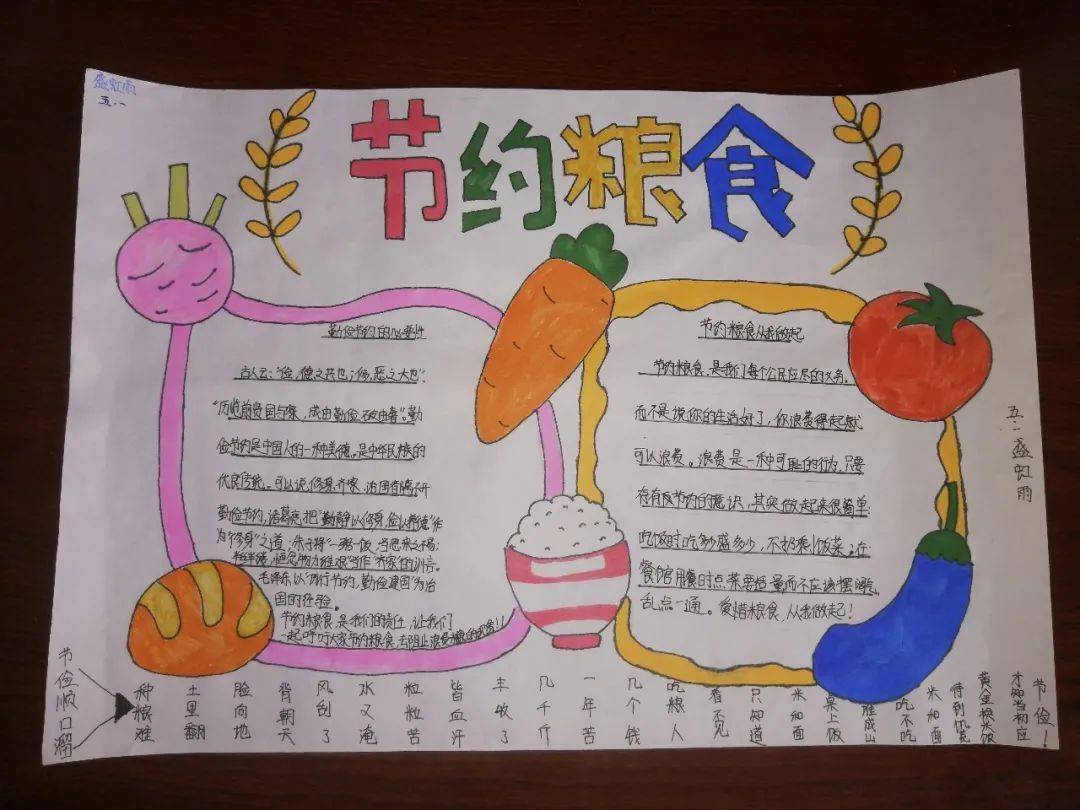 盛虹雨
五.一
节约粮食
勤俭节约的必要性
古人云:“俭,德之共也;侈,恶之大也”.
“历览前贤国与家,成由勤俭破由奢”.勤
俭节约是中国人的一种美德。是中华民族的
优良传统。可以说,修身,齐家,治国都离不开
勤俭节约,诸葛亮把“静以修身,俭以养德”作
为“修身”之道;朱子将“一粥一饭,当思来之不易;
半丝半缕,恒念物力维艰”当作“齐家”的训言。
毛泽东以“厉行节约,勤俭建国”为治
国的经验。
节约粮食,是我们的责任,让我们
一起呼吁大家节约粮食,去阻止浪费
节约粮食从我做起
节约粮食,是我们每个公民应尽的义务。
而不是说你的生活好了,你浪费得起就
可以浪费。浪费是一种可耻的行为,只要
存有反节约的意识,其实做起来很简单:
吃饭时吃多少盛多少,不扔剩饭菜。在
餐馆用餐时点菜要适量而不应该摆
乱点一通。爱惜粮食,从我做起!
五.一盛虹雨
节俭顺口溜
种粮难
土里翻
脸向地
背朝天
风刮了
水又淹
粒粒苦
皆血汗
丰收了
几千斤
一年苦
几个钱
吃粮人
看不见
只知道
米和面
桌上饭
堆成山
吃不吃
米和面
待到饥荒
黄金换饭
才知当初应
节俭!